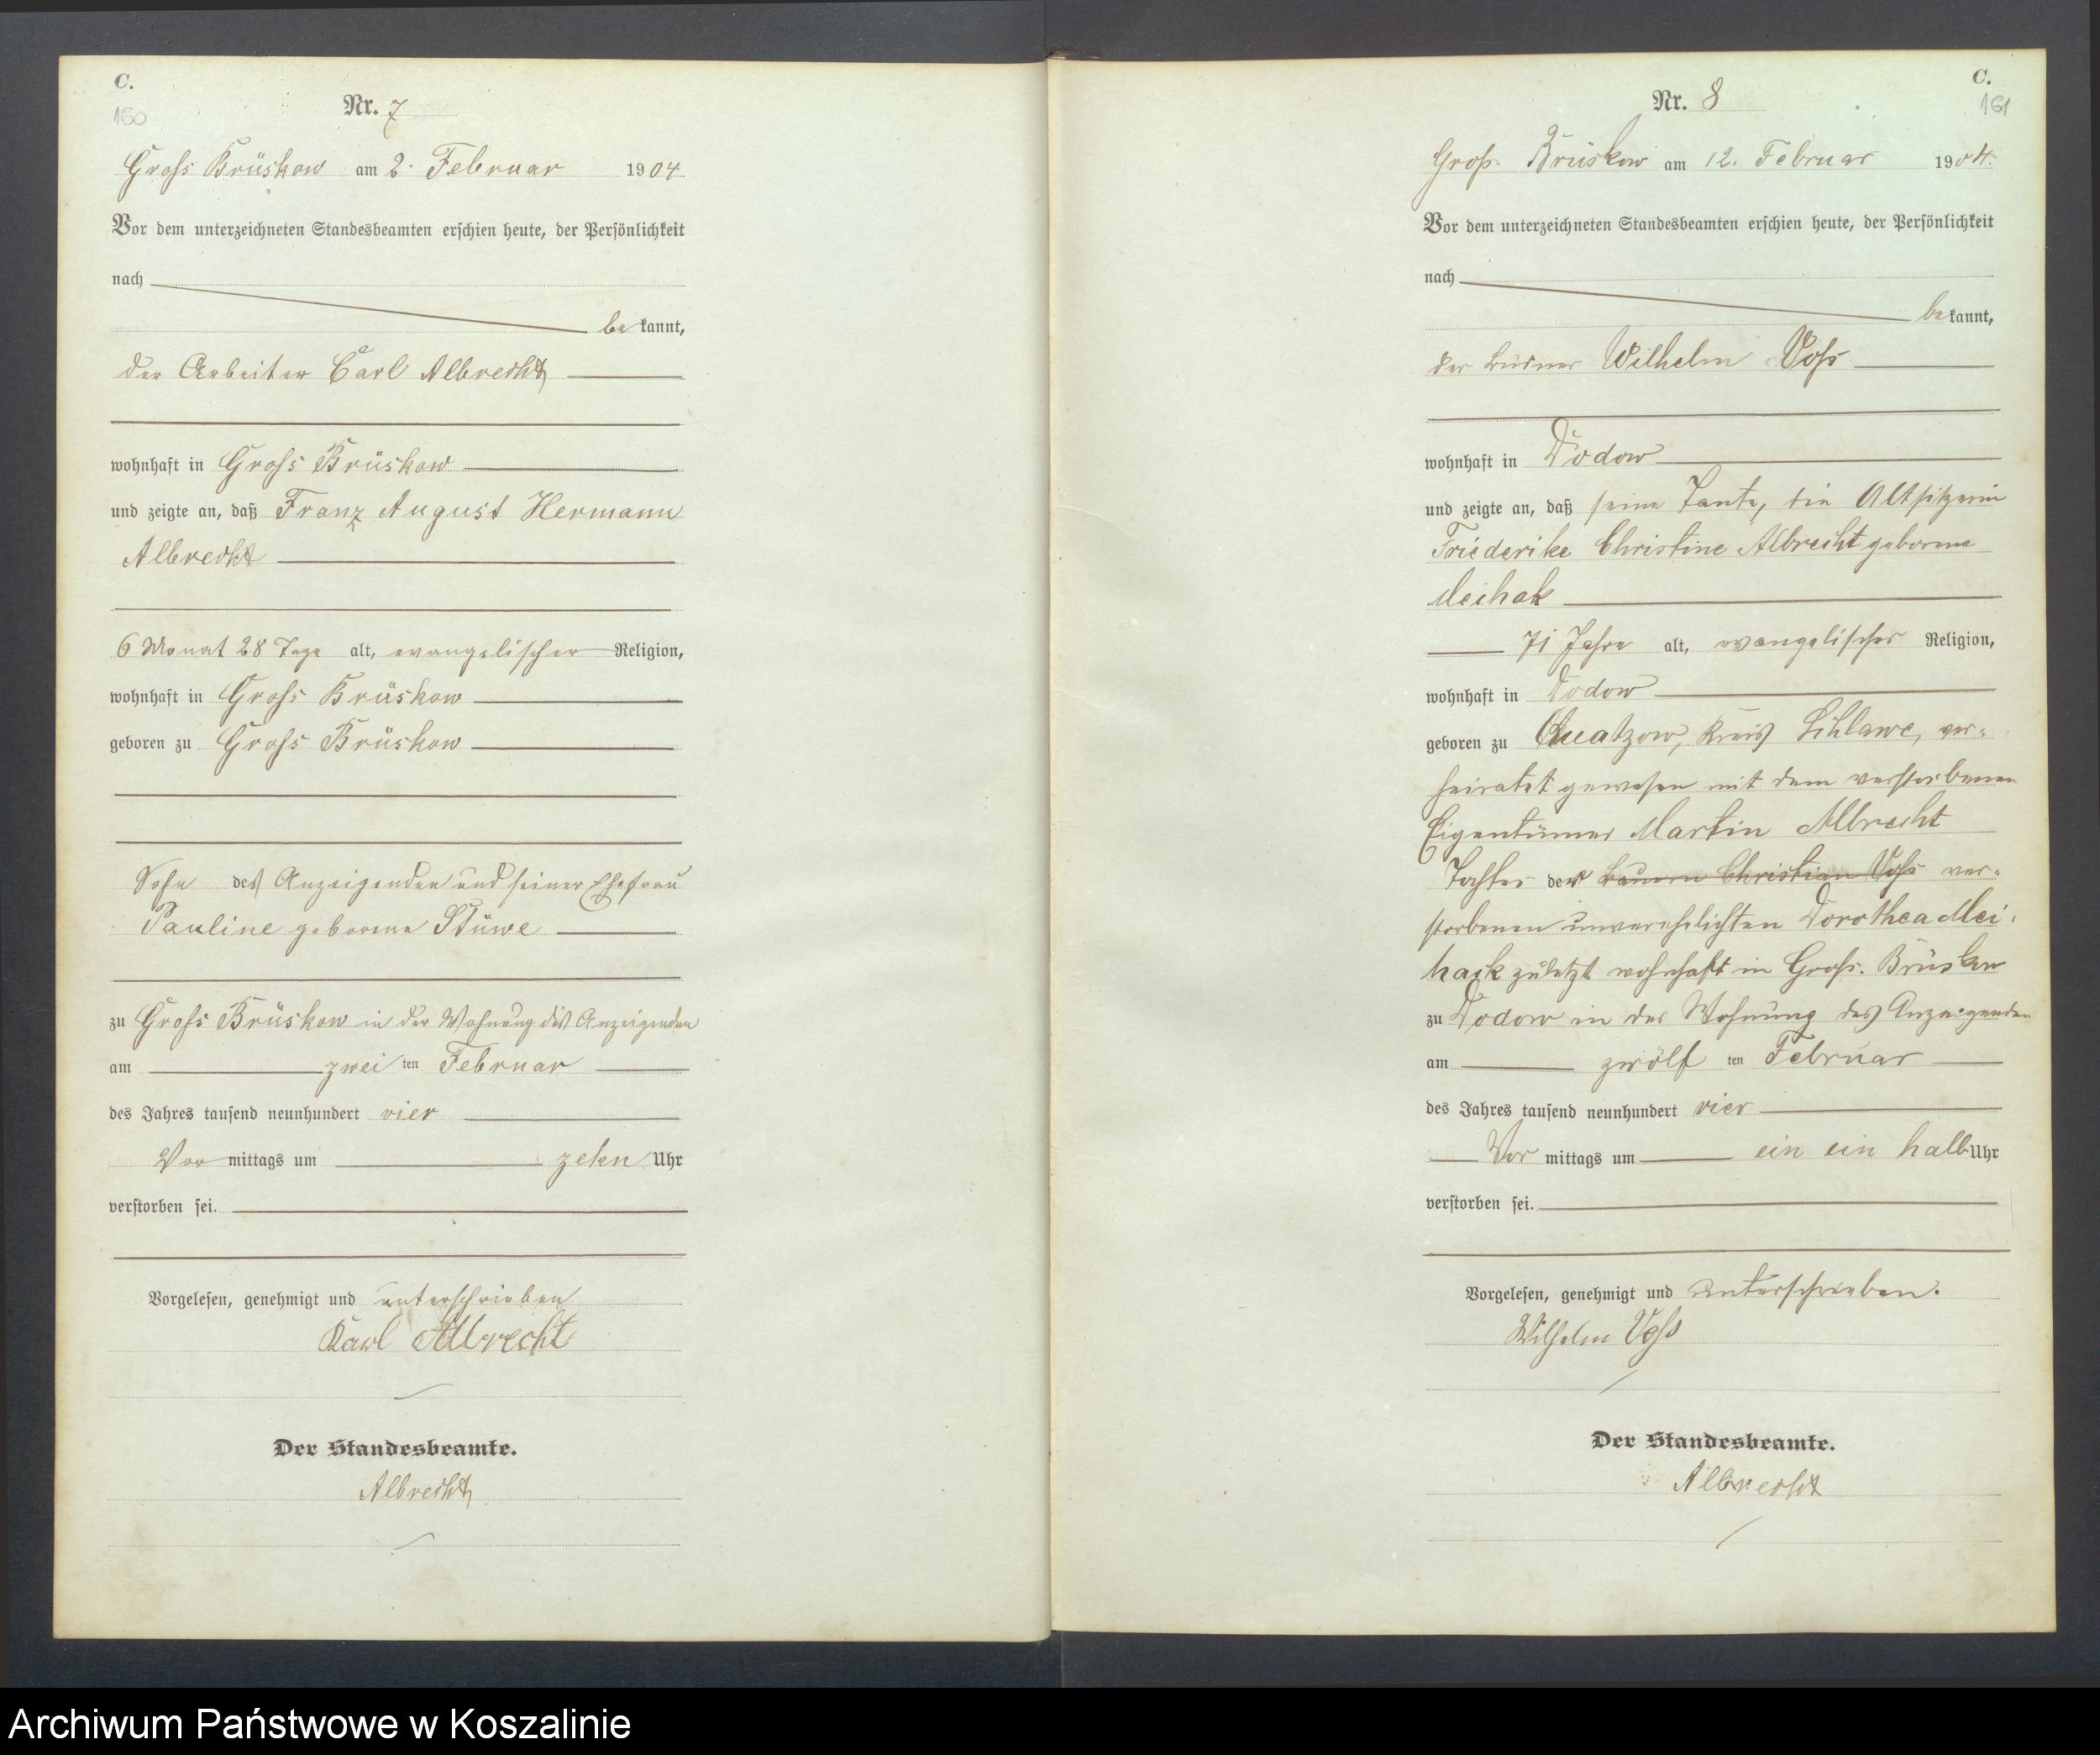 C.
160
Nr. 7
Groß Brüskow am 2. Februar 1904
Vor dem unterzeichneten Standesbeamten erschien heute, der Persönlichkeit
nach
be kannt,
der Arbeiter Carl Albrecht
wohnhaft in Groß Brüskow
und zeigte an, daß Franz August Hermann
Albrecht
6 Monat 28 Tage alt, evangelischer Religion,
wohnhaft in Groß Brüskow
geboren zu Groß Brüskow
Sohn des Anzeigenden und seiner Ehefrau
Pauline geborene Stüwe
zu Groß Brüskow in der Wohnung des Anzeigenden
am zwei ten Februar
des Jahres tausend neunhundert vier
Vor mittags um zehn Uhr
verstorben sei.
Vorgelesen, genehmigt und unterschrieben
Karl Albrecht
Der Standesbeamte.
Albrecht
C.
161
Nr. 8
Groß. Brüskow am 12. Februar 1904.
Vor dem unterzeichneten Standesbeamten erschien heute, der Persönlichkeit
nach
be kannt,
der Büdner Wilhelm Voß
wohnhaft in Dodow
und zeigte an, daß seine Tante, die Altsitzerin
Friederike Christine Albrecht geborene
Meihak
71 Jahre alt, evangelischer Religion,
wohnhaft in Dodow
geboren zu Quatzow, Kreis Schlawe, ver-
heiratet gewesen mit dem verstorbenen
Eigentümer Martin Albrecht
Tochter der Bauern Christian Voß ver-
storbenen unverehelichten Dorothea Mei-
hack zuletzt wohnhaft in Groß. Brüskow
zu Dodow in der Wohnung des Anzeigenden
am zwölf ten Februar
des Jahres tausend neunhundert vier
Vor mittags um ein ein halb Uhr
verstorben sei.
Vorgelesen, genehmigt und unterschrieben.
Wilhelm Voß
Der Standesbeamte.
Albrecht
Archiwum Państwowe w Koszalinie